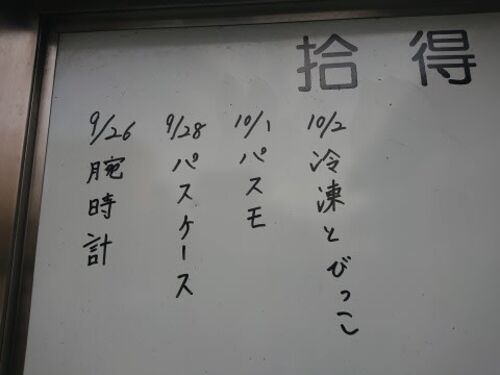 拾得
10/2 冷凍とびっこ
10/1 パスモ
9/28 パスケース
9/26 腕時計